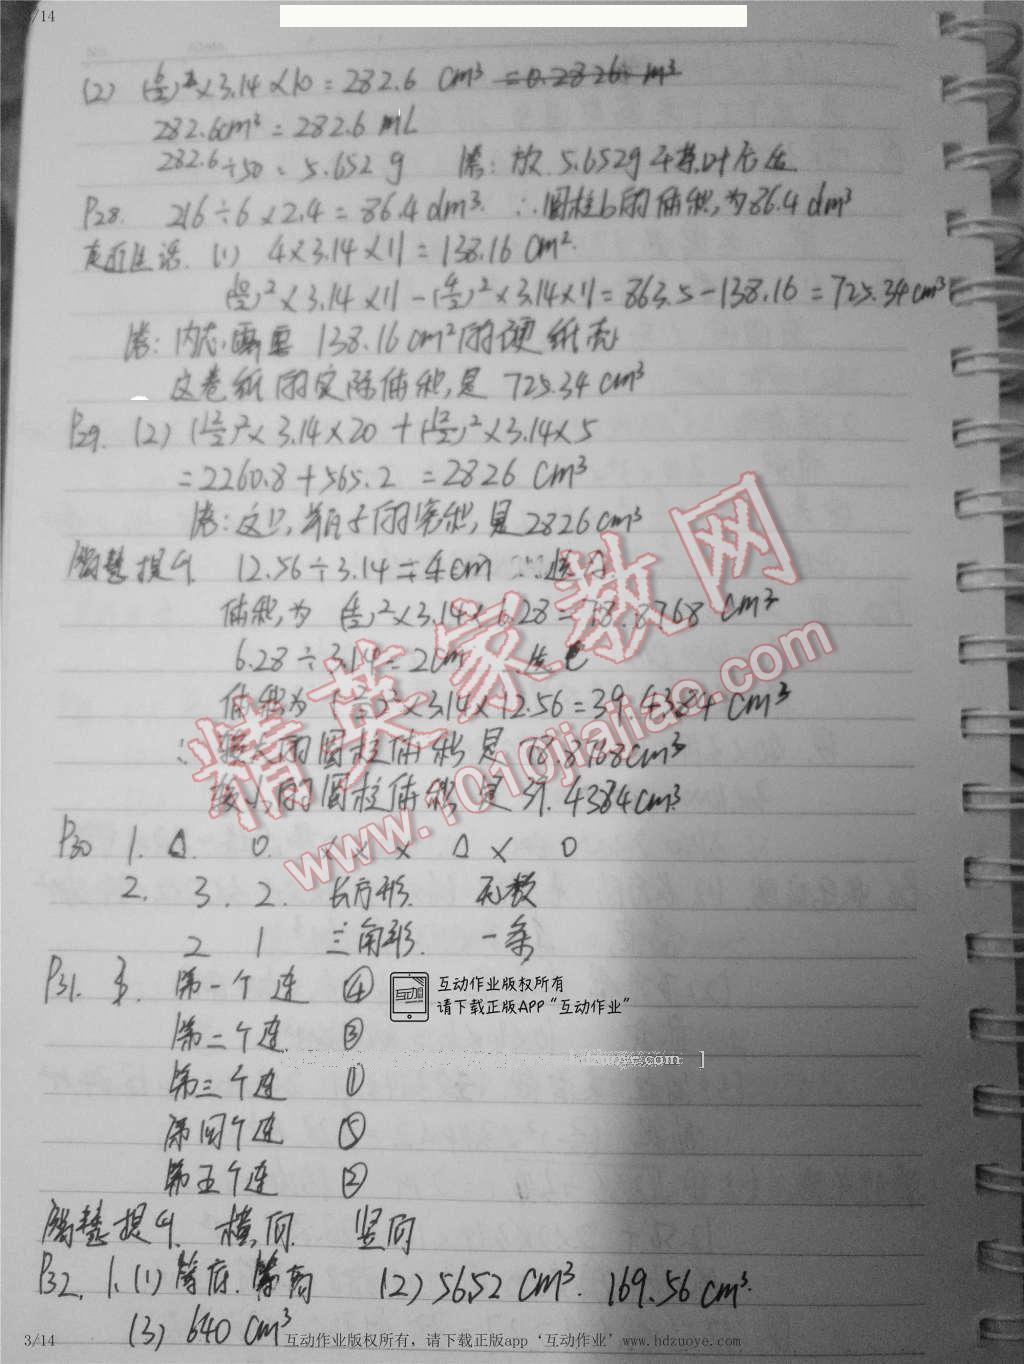 /14
(2) (6/2)²×3.14×10=282.6 cm³ =0.2826 m³
282.6cm³=282.6 mL
282.6÷50=5.652g 答:放5.652g
P28. 216÷6×2.4=86.4dm³. ∴圆柱b的体积为86.4dm³
走近生活. (1) 4×3.14×11=138.16 cm².
(10/2)²×3.14×11-(4/2)²×3.14×11=863.5-138.16=725.34cm³
答:内芯需要138.16cm²的硬纸壳
这卷纸的实际体积是 725.34cm³
P29. (2) (12/2)²×3.14×20+(12/2)²×3.14×5
=2260.8+565.2=2826 cm³
答:这只瓶子的容积是2826cm³
智慧提升. 12.56÷3.14=4cm
体积为 (4/2)²×3.14×6.28=78.8768 cm³
6.28÷3.14=2cm
体积为 (2/2)²×3.14×12.56=39.4384cm³
∴较大的圆柱体积是78.8768cm³
较小的圆柱体积是39.4384cm³
精英家教网
www.1010jiajiao.com
P30 1.
2. 3. 2. 长方形. 无数
2 1 三角形. 一条
P31. 3. 第一个连 ④
互动作业版权所有
请下载正版APP“互动作业”
第二个连 ③
第三个连 ①
第四个连 ⑤
第五个连 ②
智慧提升. 横向. 竖向
P32. 1.(1)等底.等高 (2)5652cm³. 169.56cm³.
(3) 640cm³
3/14 互动作业版权所有，请下载正版app‘互动作业’www.hdzuoye.com